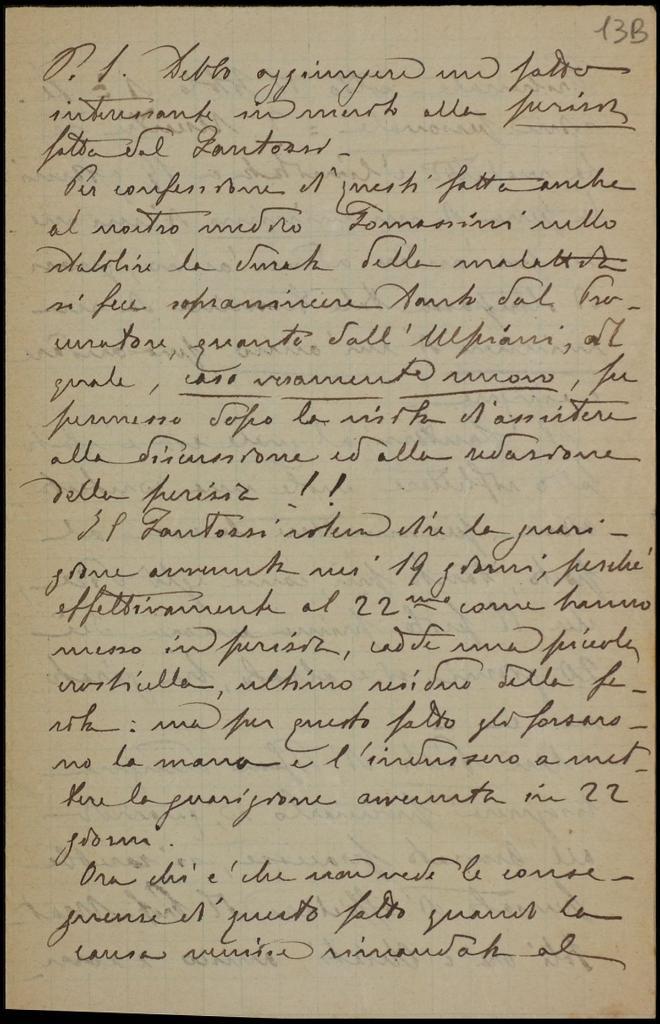 13B
P. S. Debbo aggiungere un fatto
interessante in merito alla perizia
fatta dal Fantozzi.
Per confessione di questi fatta anche
al nostro medico Tomassini nello
stabilire la durata della malattia
si fece sopravincere tanto dal Pro-
curatore, quanto dall'Ulpiani, il
quale, caso veramente nuovo, fu
permesso dopo la visita d'assistere
alla discussione ed alla redazione
della perizia !!
Il Fantozzi voleva dire la guari-
gione avvenuta nei 19 giorni, perché
effettivamente al 22mo come hanno
messo in perizia, cadde una piccola
crosticella, ultimo residuo della fe-
rita: ma per questo fatto gli forzaro-
no la mano e l'indussero a met-
tere la guarigione avvenuta in 22
giorni.
Ora chi è che non vede le conse-
guenze di questo fatto quando la
causa venisse rimandata al